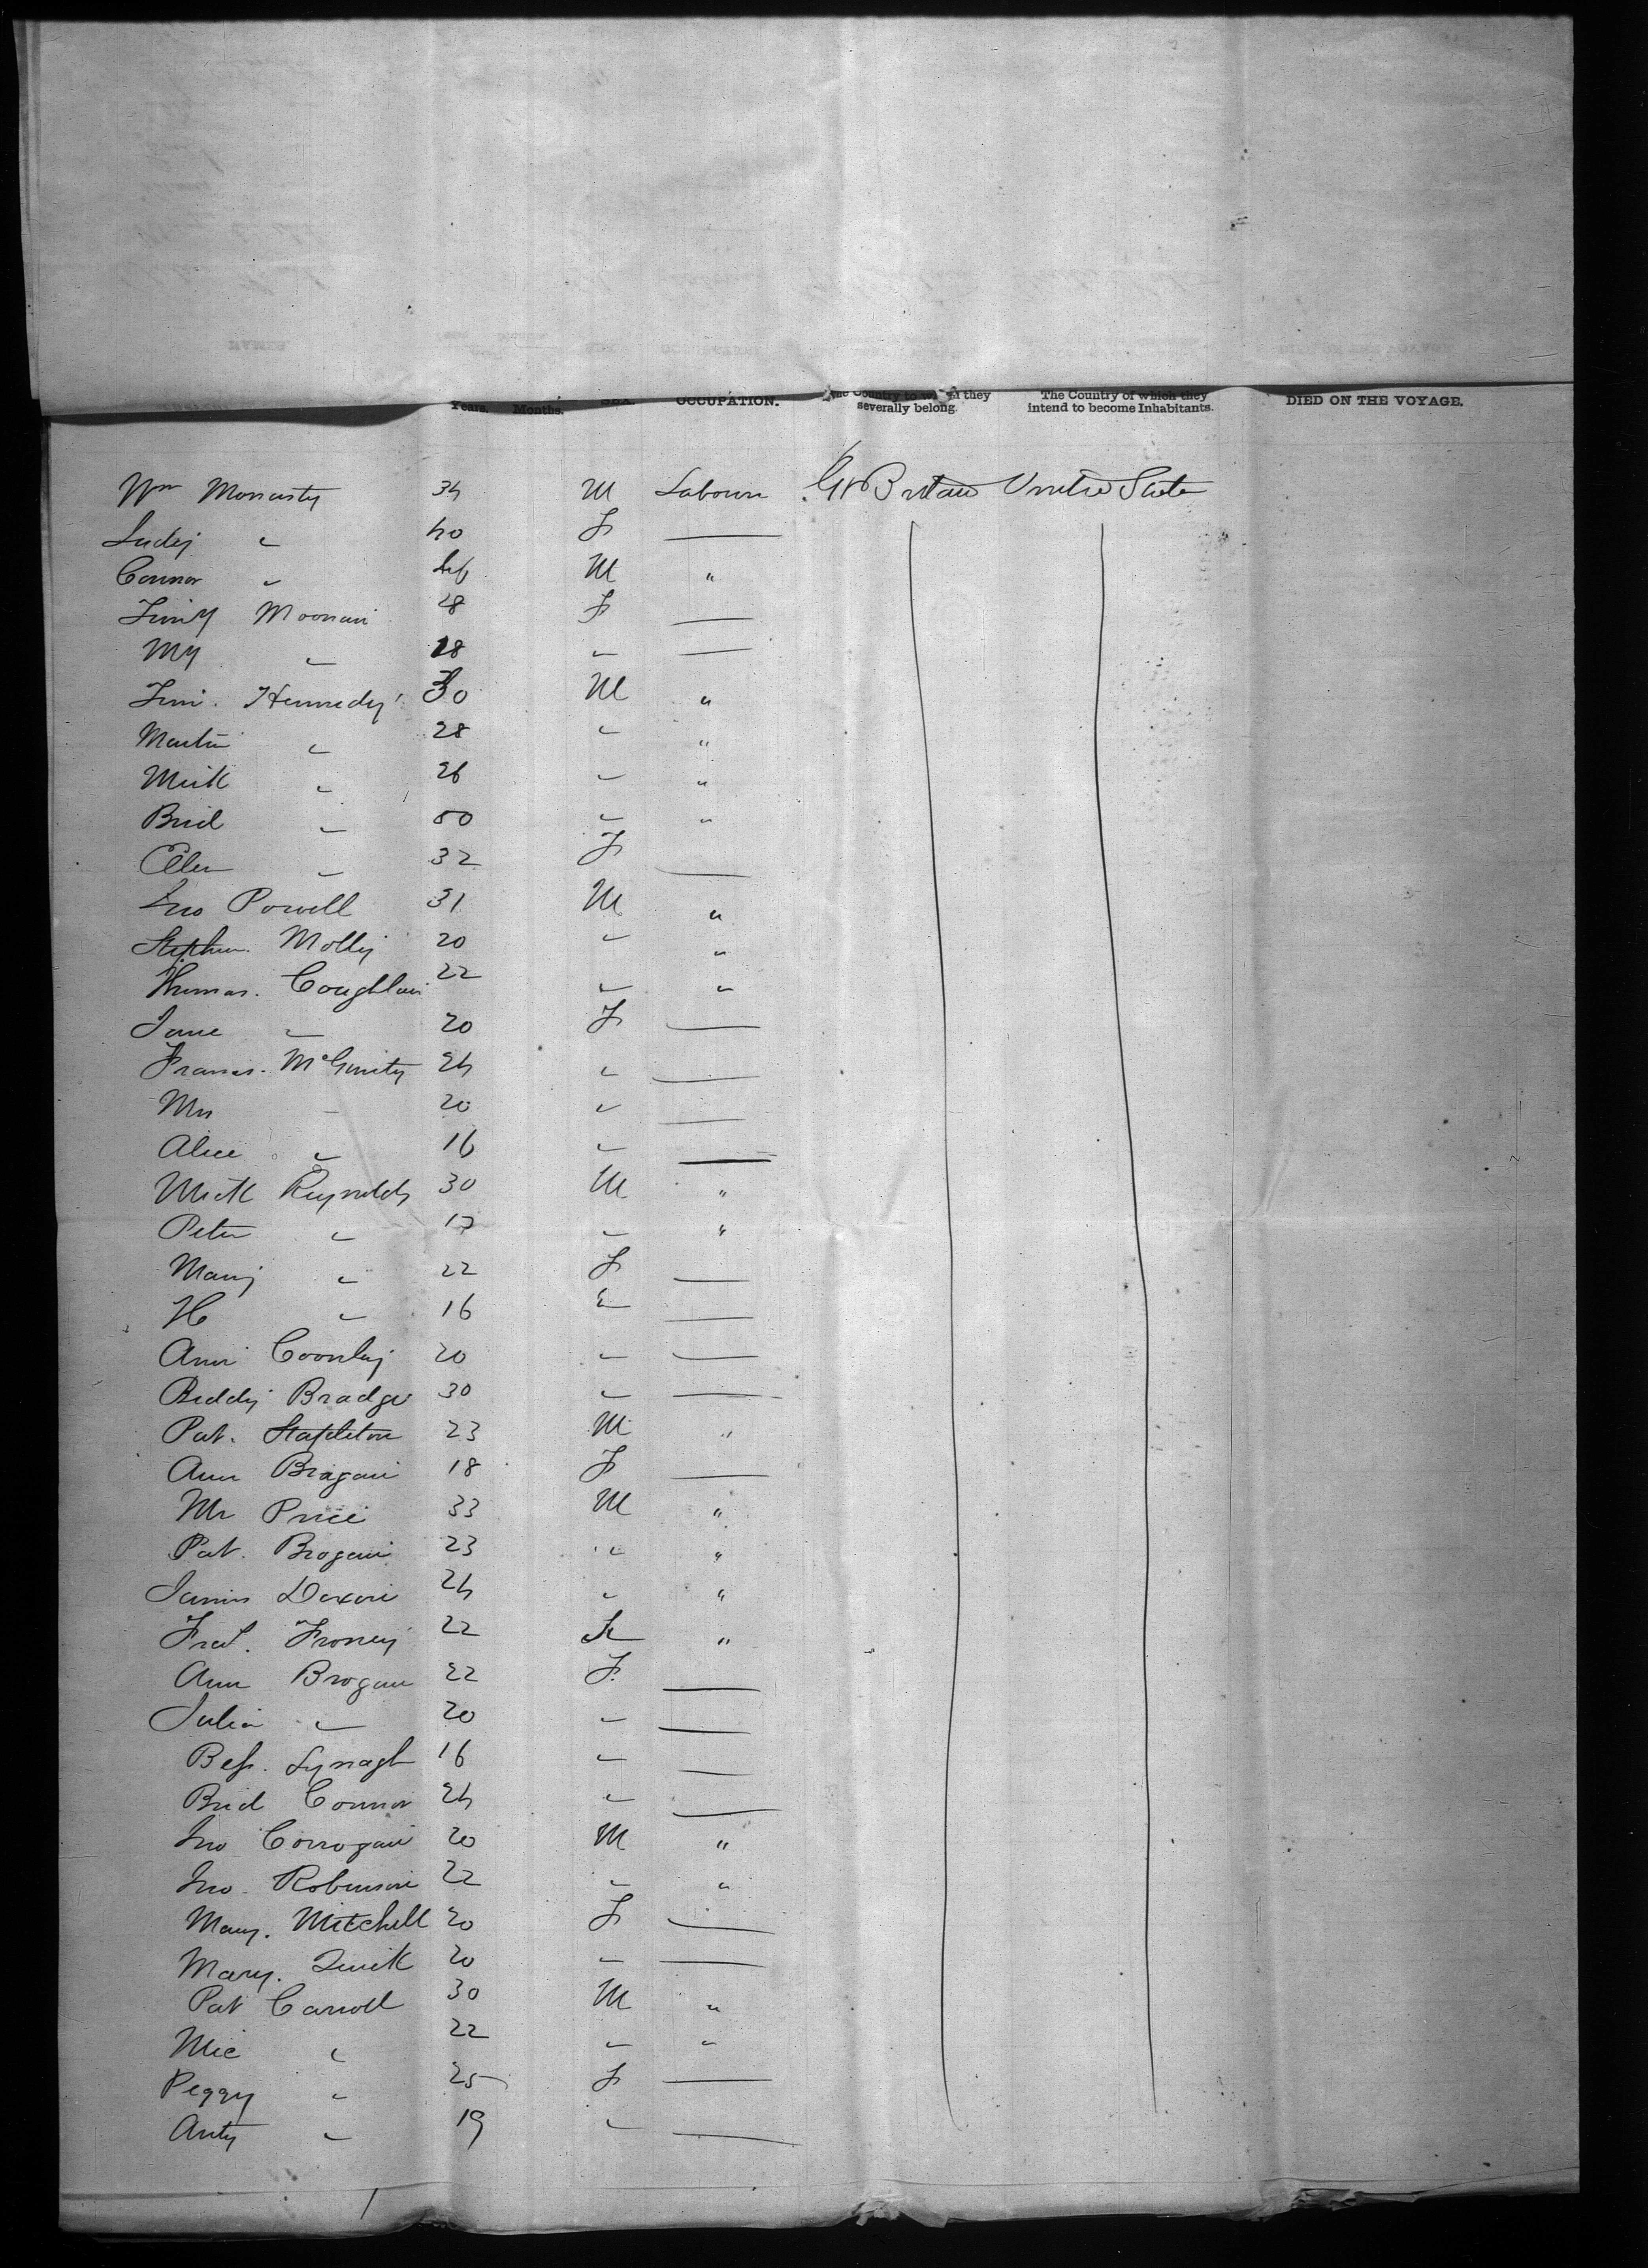 Years. Months. SEX. OCCUPATION. the Country to which they severally belong. The Country of which they intend to become Inhabitants. DIED ON THE VOYAGE.
Wm 34 M Labourer Gt Britain United State
Judy " 40 F —
Connor " M "
28 F —
My " 18 " —
Kennedy 30 M "
Martin " 28 " "
Mick " 26 " "
Brid " 50 " "
Ellen " 32 F —
Jno Powell 31 M "
Stephen Molly 20 " "
Thomas. Coughlan 22 " "
Jane " 20 F —
Frances. McGinity 24 " —
20 " —
Alice " 16 " —
Mick Reynolds 30 M "
Peter " 17 " "
Mary " 22 F —
16 " —
Ann 20 " —
Biddy 30 " —
Pat. Stapleton 23 M "
Ann Brogan 18 F —
Mr Price 33 M "
Pat. Brogan 23 " "
James 24 " "
22 "
Ann Brogan 22 F —
Julia " 20 " —
Bess. Lynagh 16 " —
Brid Connor 24 " —
Jno Corrogan 20 M "
Jno. Robinson 22 " "
Mary. Mitchell 20 F —
Mary. Quick 20 " —
Pat Carroll 30 M "
Mic " 22 " "
Peggy " 25 F —
Anty " 19 " —